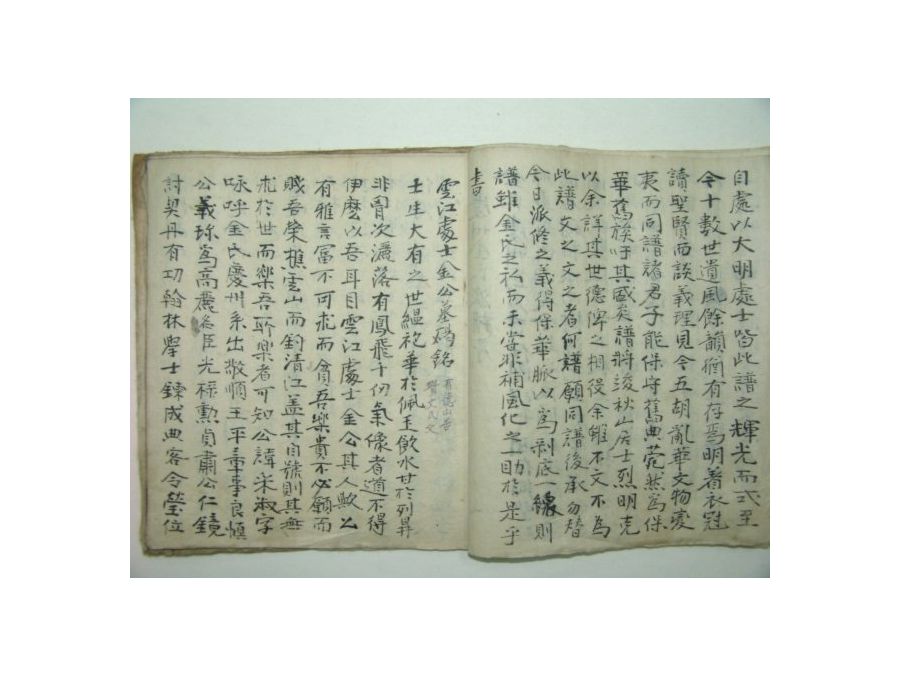 自處以大明處士皆此譜之輝光而式至
今十數世遺風餘韻猶有存焉明著衣冠
讀聖賢而談義理見今五胡亂華文物變
夷而同譜諸君子能保守舊典菀然爲保
華舊族吁其盛矣譜將浚秋山居士烈明克
以余詳其世德俾之相役余雖不文不爲
此譜文之文之者何譜願同譜後承勿替
今日派修之義得保華脈以爲剥底一線則
譜雖金氏之私而未嘗非補風化之一助於是乎
書
雲江處士金公墓碣銘
士生大有之世縕袍華於佩玉飮水甘於列鼎
非胷次灑落有鳳飛千仞氣像者道不得
伊麽以吾耳目雲江處士金公其人歟公
有雅言富不可求而貧吾樂貴不必願而
賤吾榮樵雲山而釣清江盖其自號則其無
求於世而樂吾所樂者可知公諱采淑字
咏呼金氏慶州系出敬順王平章事良愼
公義珎爲高麗名臣光祿勲貞肅公仁鏡
討契丹有功翰林學士鍊成典客令瑩位